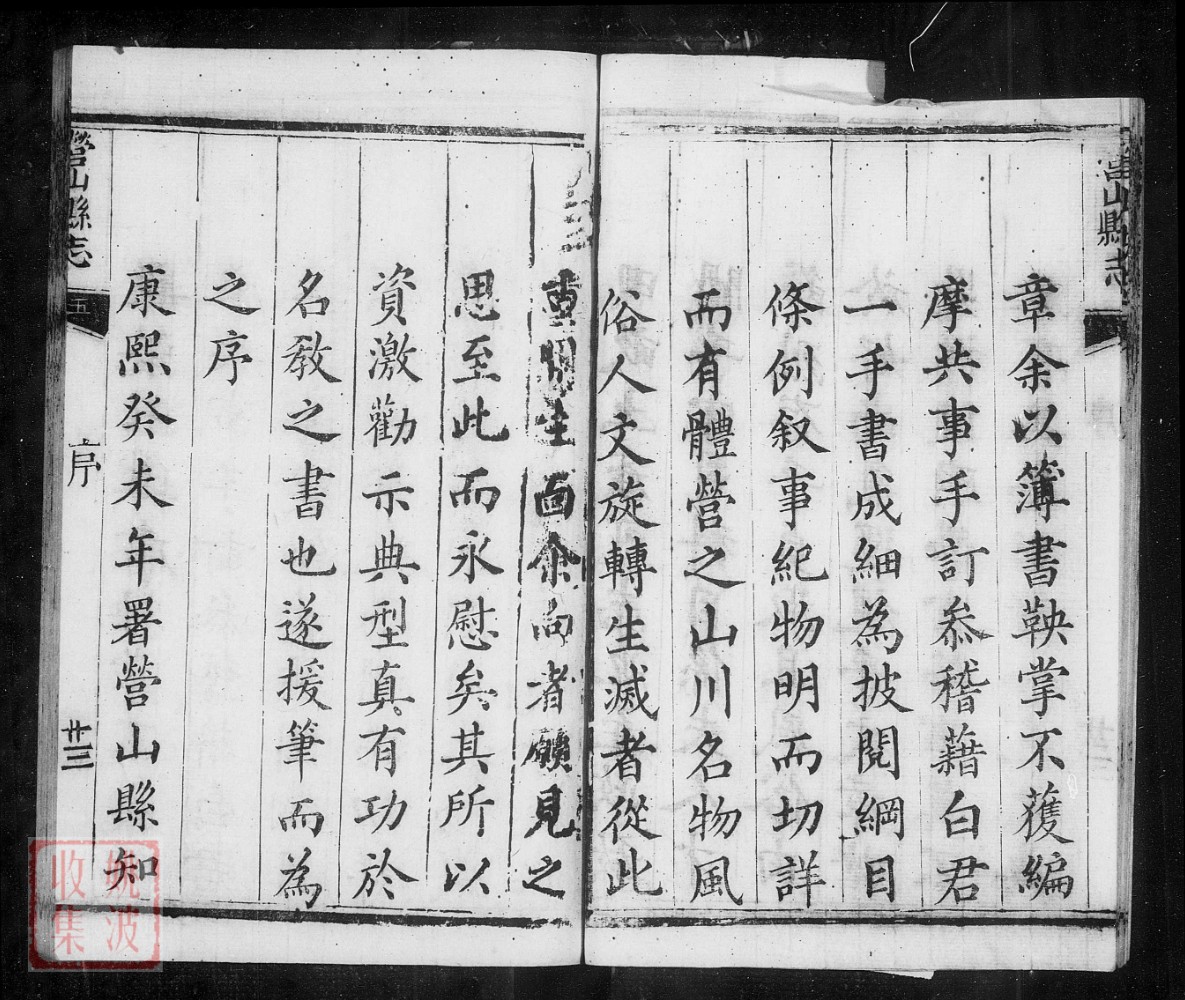 營山縣志
章余以簿書鞅掌不獲編
摩共事手訂叅稽藉白君
一手書成細為披閱綱目
條例叙事紀物明而切詳
而有體營之山川名物風
俗人文旋轉生滅者從此
重開生面余向者願見之
思至此而永慰矣其所以
資激勸示典型真有功於
名教之書也遂援筆而為
之序
康熙癸未年署營山縣知
營山縣志
五
序
廿三
晚波
收集